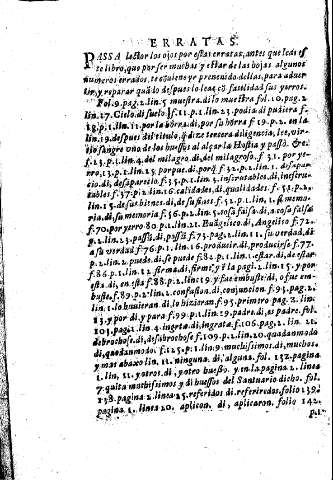 ERRATAS.
PASSA lector los ojos por estas erratas, antes que leas es
te libro, que por ser muchas y estar de las hojas algunos
numeros errados, te conuiene yr preuenido dellas, para aduer
tir, y reparar quãdo despues lo leas cõ facilidad sus yerros.
Fol. 9. pag. 2. lin. 5 muestra. di. lo muestra fol. 10. pag. 2
lin. 17. Cielo. di. suelo f. 11. p. 1. lin. 23. podia. di. pudiera f.
lin. 11. por la borra. di. por su borra f. 19. p. 2. en la
lin. 19. despues del titulo, q̃ dize tercera diligencia, lee, vir-
tio sangre vno de los huessos al alçar la Hostia y passò. &c.
f. 23. p. 1. lin. 4. del milagro. di. del milagroso. f. 31. por yer-
ro, 13. p. 1. lin. 23. porque. di. porq̃ f. 32. p. 1. lin. 1. desapar
cio, di. desaparecio f. 35. p. 1. lin. 5. inscrotables. di. inescru-
tables f. 37. p. 1. lin. 16. calidades. di. qualidades. f. 38. p. 2.
lin. 15. de sus bienes. di. de su f. 52. p. 1. lin. 1. memo
ria. di. su memoria f. 56. p. 2. lin. 5. cosa falsa. di. a cosa falsa
f. 70. por yerro 80. p. 1. lin. 21. Euãgelico. di. Angelico f. 72
p. 2. lin. 23. passõ. di. passò f. 75. pag. 2. lin. 11. su verdad, di
a su verdad f. 76. p. 1. lin. 16. producir. di. producirse f. 77.
p. 2. lin. 2. puede. di. se puede f. 82. p. 1. lin. 1. estar. di. de estar
f. 86. p. 1. lin. 12. firma. di. firme, y ẽ la pagi. 2. lin. 15. y por
esta di. en esta f. 88. p. 2. lin. 19. y fue embuste di. o fue em-
buste. f. 89. p. 2. lin. 2. confusion. di. conjuncion f. 93. pag. 2.
lin. 1. lo huuieran. di. lo hizieran f. 95. primero pag. 2. lin.
13. y por di. y para f. 99. p. 1. lin. 29. padra. di. as padre. fol.
103. pag. 1. lin. 4. ingreta. di. ingrata. f. 106. pag. 2. lin. 21.
debrochose. di. desabrochose f. 109. p. 1. lin. 20. quadanmodo
di, quodanmodo. f. 125. p. 1. lin. 9. muchissimos. di, muchos.
y mas abaxo lin. 11. ninguna. di, alguna. fol. 132. pagina
1. lin. 11. yotros. di, yotro huesso. y en la pagina 2. linea
7. quita muchissimos y di huessos del Santuario dicho. fol.
138. pagina 2. linea 25. referidos di. referiredos. folio 139.
pagina 1. linea 20. aplicon. di, aplicaron. folio 142.
p. 1.